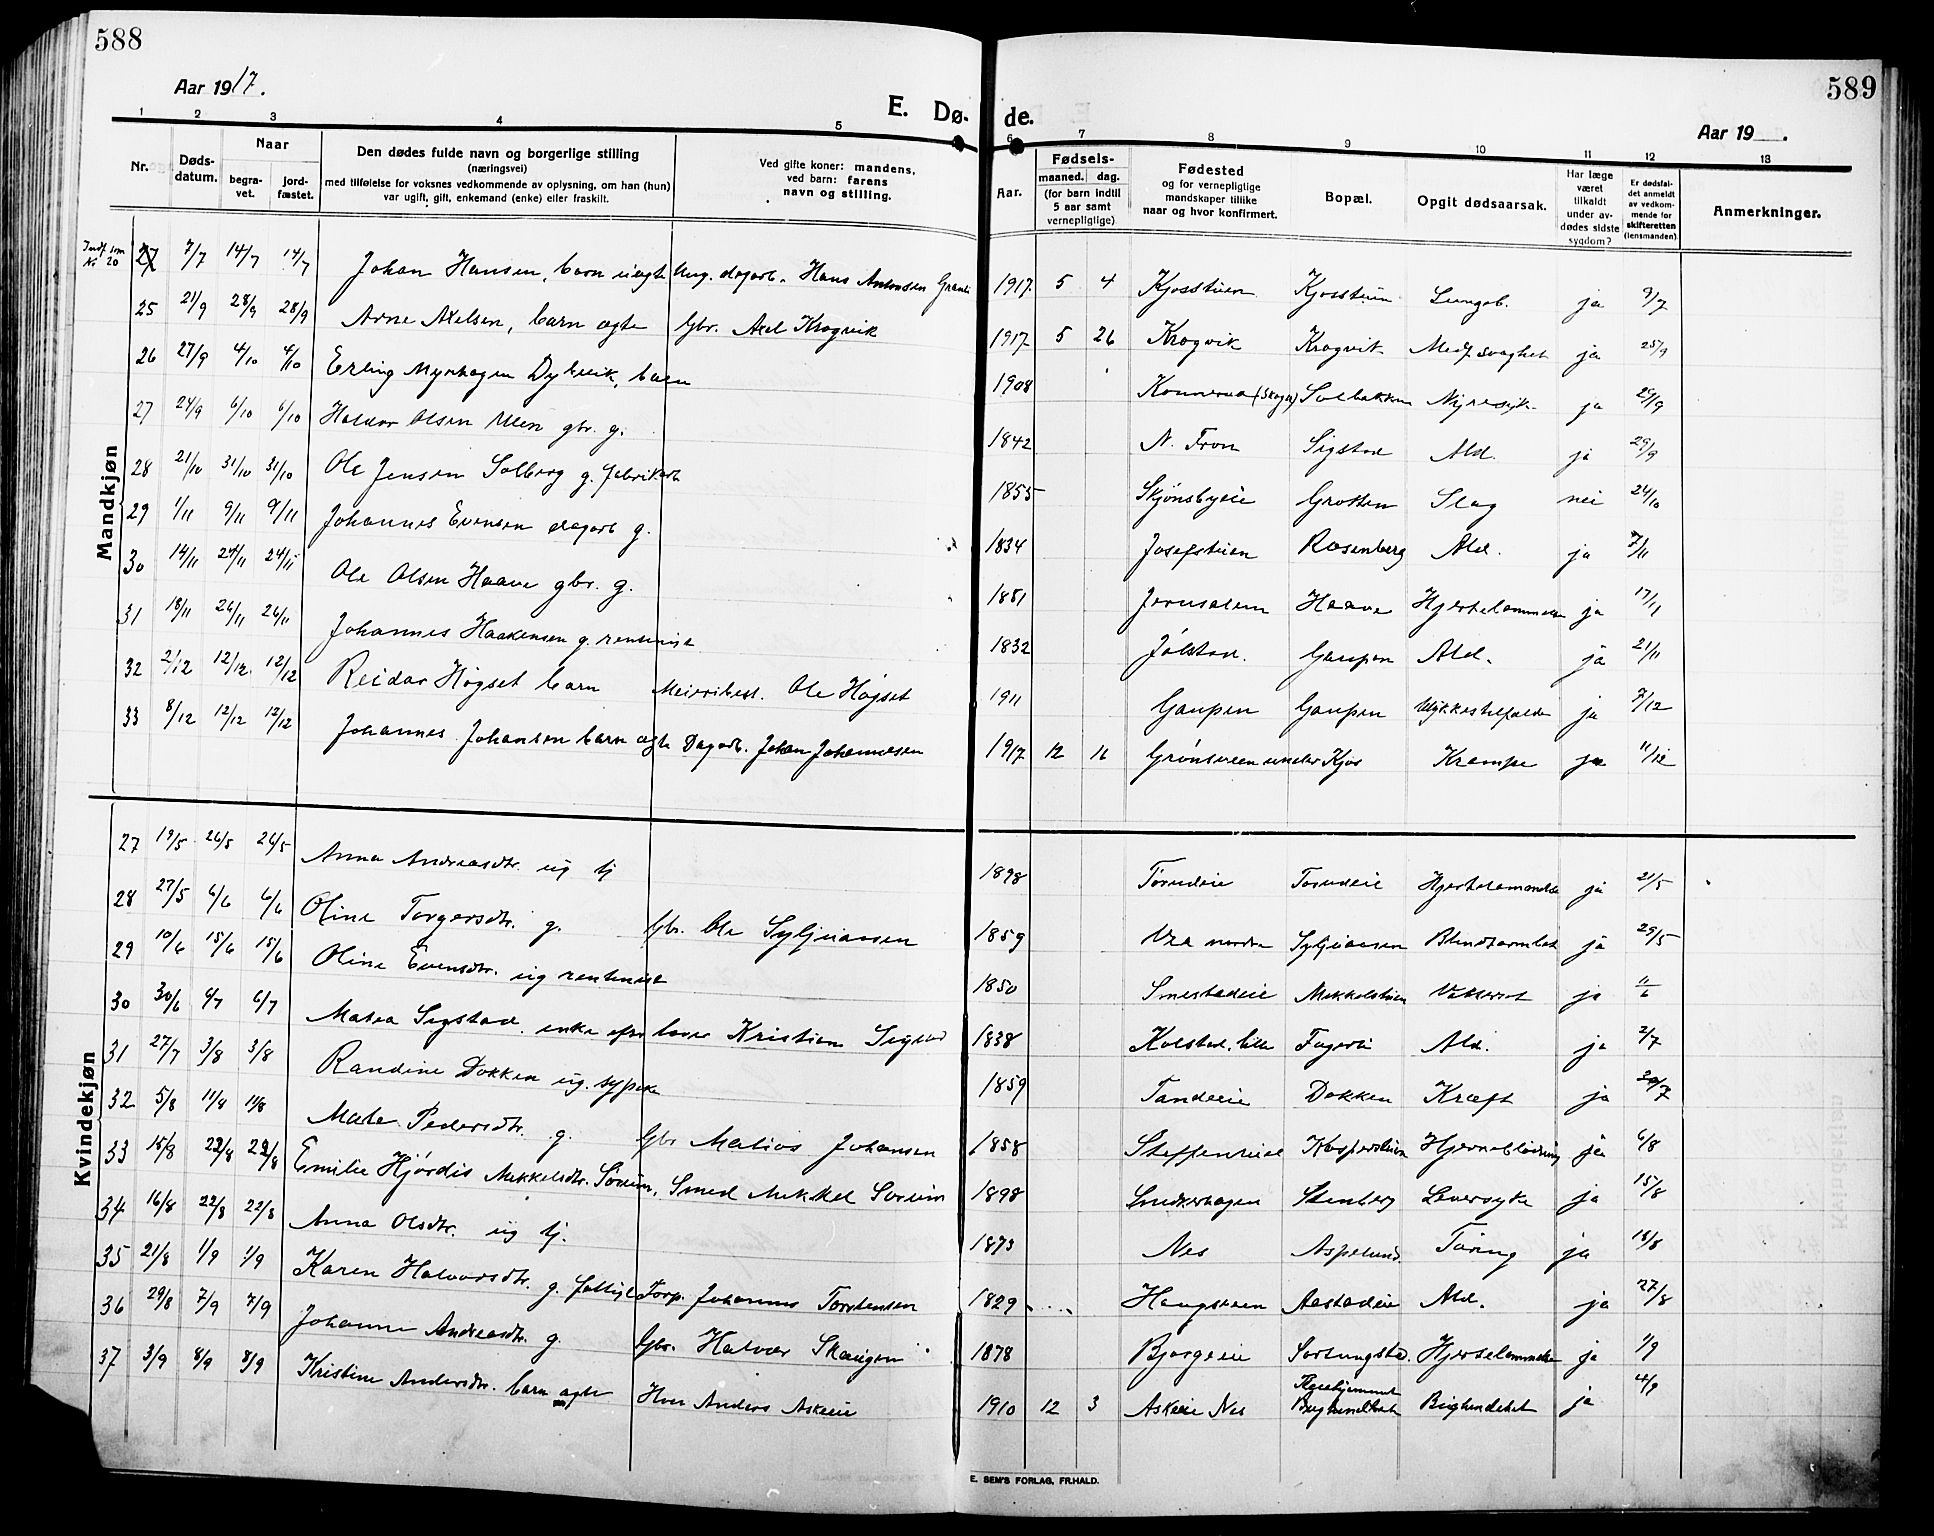 588
589
Aar 1917.
E. Dø- de.
Aar 19 .
1 2 3 4 5 6 7 8 9 10 11 12 13
Nr.
Døds-datum.
Naar
begra-vet.
jord-fæstet.
Den dødes fulde navn og borgerlige stilling
(næringsvei)
med tilføielse for voksnes vedkommende av oplysning, om han (hun)
var ugift, gift, enkemand (enke) eller fraskilt.
Ved gifte koner: mandens,
ved barn: farens
navn og stilling.
Aar.
Fødsels-
maaned. dag.
(for barn indtil
5 aar samt
vernepligtige)
Fødested
og for vernepligtige
mandskaper tillike
naar og hvor konfirmert.
Bopæl.
Opgit dødsaarsak.
Har læge
været
tilkaldt
under av-
dødes sidste
sygdom?
Er dødsfal-
det anmeldt
av vedkom-
mende for
skifteretten
(lensmanden).
Anmerkninger.
Mandkjøn
Indf. som No 20 27 7/7 14/7 14/7 Johan Hansen, barn uægte Ung. dagarb. Hans Antonsen 1917 5 4 Kjosstuen Kjosstuen Lungeb. ja 9/7
25 21/9 28/9 28/9 Arne Axelsen, barn ægte Gbr. Axel Krogvik 1917 5 26 Krogvik Krogvik Medf. svaghet ja 25/9
26 27/9 4/10 4/10 Erling Myrhagen Dybvik, barn 1908 Konnerua (Skoger) Solbakken Nyresyk. ja 29/9
27 24/9 6/10 6/10 Halvor Olsen Ulen gbr. g. 1842 N. Fron Sigstad Ald. ja 29/9
28 21/10 31/10 31/10 Ole Jensen Solberg g. fabrikarb 1855 Skjønsbyeie Grotten Slag nei 24/10
29 1/11 9/11 9/11 Johannes Evensen dagarb g. 1834 Josefstuen Rosenberg Ald. ja 7/11
30 14/11 24/11 24/11 Ole Olsen Haave gbr. g. 1851 Jerusalem Haave Hjertelammelse ja 17/11
31 18/11 26/11 26/11 Johannes Haakensen g. rentenist 1832 Jølstad. Gaupen Ald. ja 21/11
32 2/12 12/12 12/12 Reidar Høgset barn Meieribest. Ole Høgset 1911 Gaupen Gaupen Ulykkestilfælde ja 7/12
33 8/12 12/12 12/12 Johannes Johansen barn ægte Dagarb. Johan Johannesen 1917 12 Grønsveen under Kjos Krampe ja 11/12
Kvindekjøn
27 19/5 26/5 26/5 Anna Andreasdtr. ug tj 1898 Torudeie Torudeie Hjertelammelse ja 21/5
28 27/5 6/6 6/6 Oline Torgersdtr. g. Gbr. Ole Syljuaasen 1859 nordre Syljuaasen Blindtarmbet ja 29/5
29 10/6 15/6 15/6 Oline Evensdtr. ug rentenist 1850 Smestadeie Mikkelstuen ja 11/6
30 30/6 6/7 6/7 Matea Sigstad enke efter Kristian Sigstad 1838 Kolstad, lille Fagerli Ald. ja 2/7
31 27/7 3/8 3/8 Randine Dokken ug. sypike 1859 Tandeeie Dokken Kræft ja 30/7
32 5/8 11/8 11/8 Mate Pedersdtr. g. Gbr Matios Johansen 1858 Steffenseie Kasperstuen Hjerneblødning ja 6/8
33 15/8 22/8 22/8 Emilie Hjørdis Mekkelsdtr. Sørum, Smed Mekkel Sorum 1898 Stenberg Leversyke ja 15/8
34 16/8 22/8 22/8 Anna Olsdtr. ug tj. 1873 Nes Aspelund Tæring ja 18/8
35 21/8 1/9 1/9 Karen Halvorsdtr. g. Forp. Johannes Torstensen 1829 Haugsveen Aastadeie Ald. ja 27/8
36 29/8 7/9 7/9 Johanne Andreasdtr. g. Gbr. Halvor Skaugen 1878 Bjørgeeie Sorlungstad. Hjertelammelse ja 1/9
37 3/9 8/9 8/9 Kristine Andersdtr. barn ægte Anders Askeeie 1910 12 3 Askeeie Nes Plejehjemmet ja 4/9
E. SEM'S FORLAG, FR.HALD.